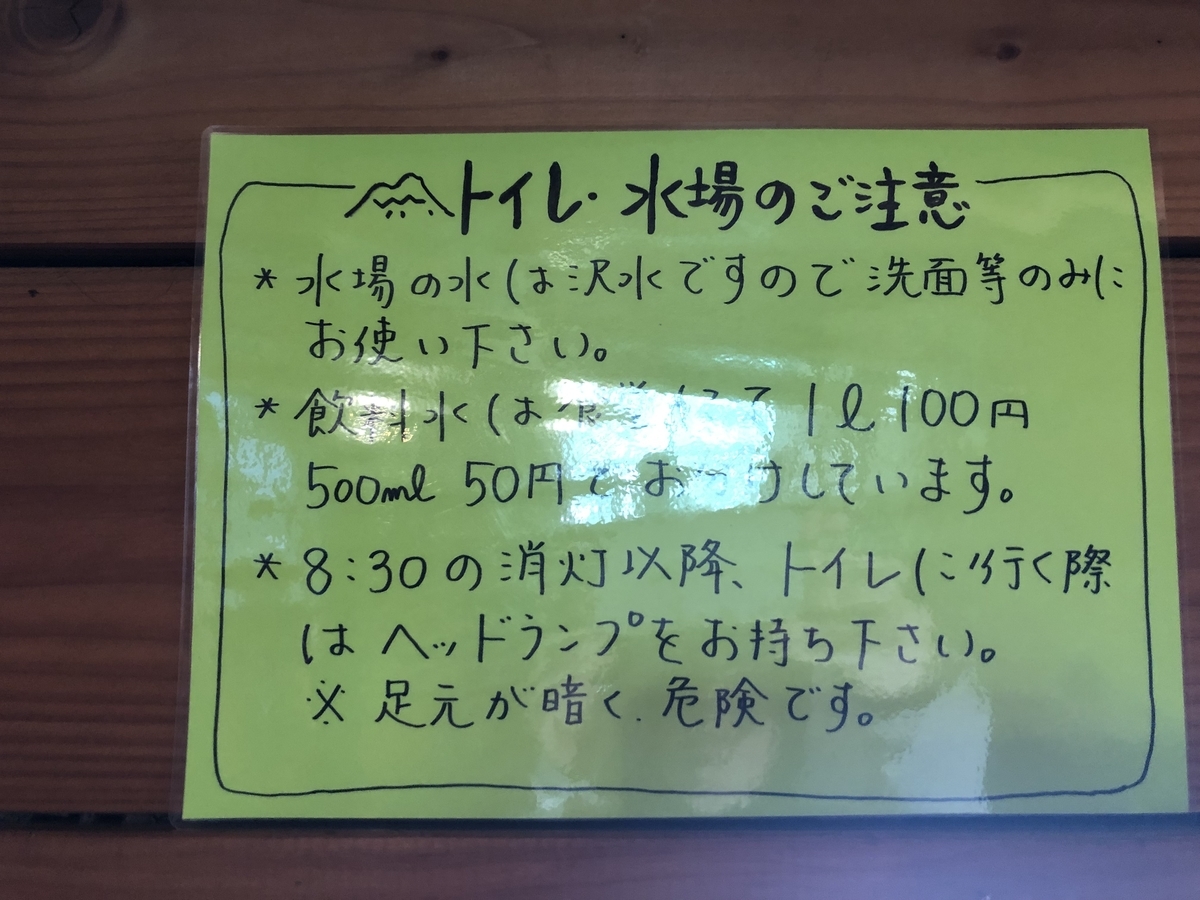 トイレ・水場のご注意
* 水場の水は沢水ですので洗面等のみに
お使い下さい。
* 飲料水は食堂にて 1ℓ 100円
500ml 50円でおわけしています。
* 8:30の消灯以降、トイレに行く際
はヘッドランプをお持ち下さい。
※ 足元が暗く、危険です。